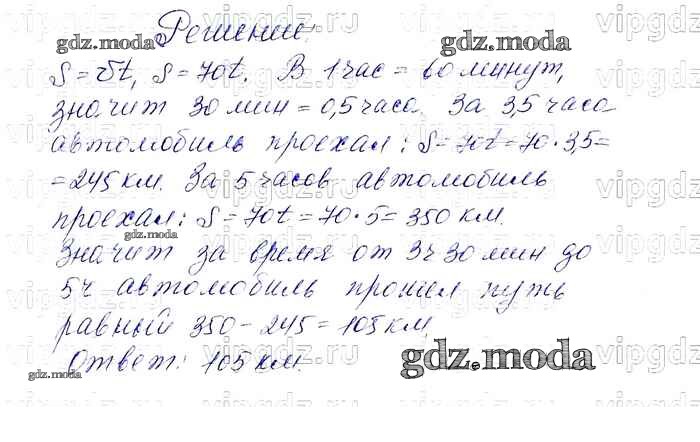 Решение:
S = vt, S = 70t. В 1 час = 60 минут,
значит 30 мин = 0,5 часа. За 3,5 часа
автомобиль проехал: S = 70t = 70 · 3,5 =
= 245 км. За 5 часов автомобиль
проехал: S = 70t = 70 · 5 = 350 км.
Значит за время от 3ч 30 мин до
5ч автомобиль прошел путь
равный 350 - 245 = 105 км.
Ответ: 105 км.
gdz.moda
gdz.moda
gdz.moda
gdz.moda
gdz.moda
vipgdz.ru